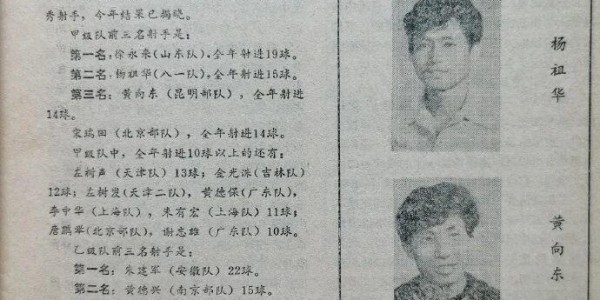 秀射手，今年结果已揭晓。
甲级队前三名射手是：
第一名：徐永来（山东队）.全年射进19球。
第二名：杨祖华（八一队），全年射进15球。
第三名：黄向东（昆明部队），全年射进
14球。
宋瑞田（北京部队），全年射进14球。
甲级队中，全年射进10球以上的还有：
左树声（天津队）13球；金光洙（吉林队）
12球；左树发（天津二队），黄德保（广东队），
李中华（上海队），朱有宏（上海队）11球；
唐鹏举（北京部队），谢志雄（广东队）10球。
乙级队前三名射手是：
第一名：朱建军（安徽队）22球。
第二名：黄德兴（南京部队）15球。
杨祖华
黄向东